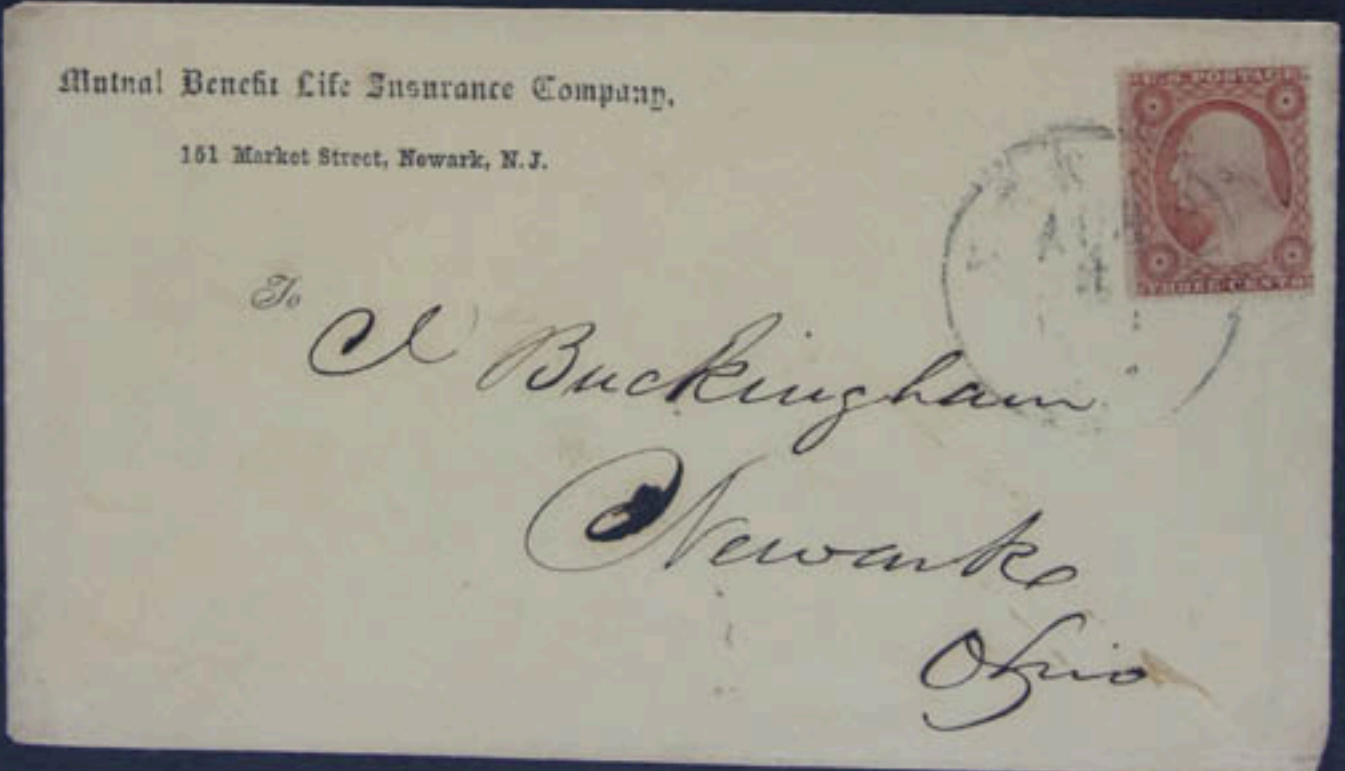 Mutual Benefit Life Insurance Company,
151 Market Street, Newark, N. J.
U.S. POSTAGE
THREE CENTS
To
Buckingham
Newark
Ohio